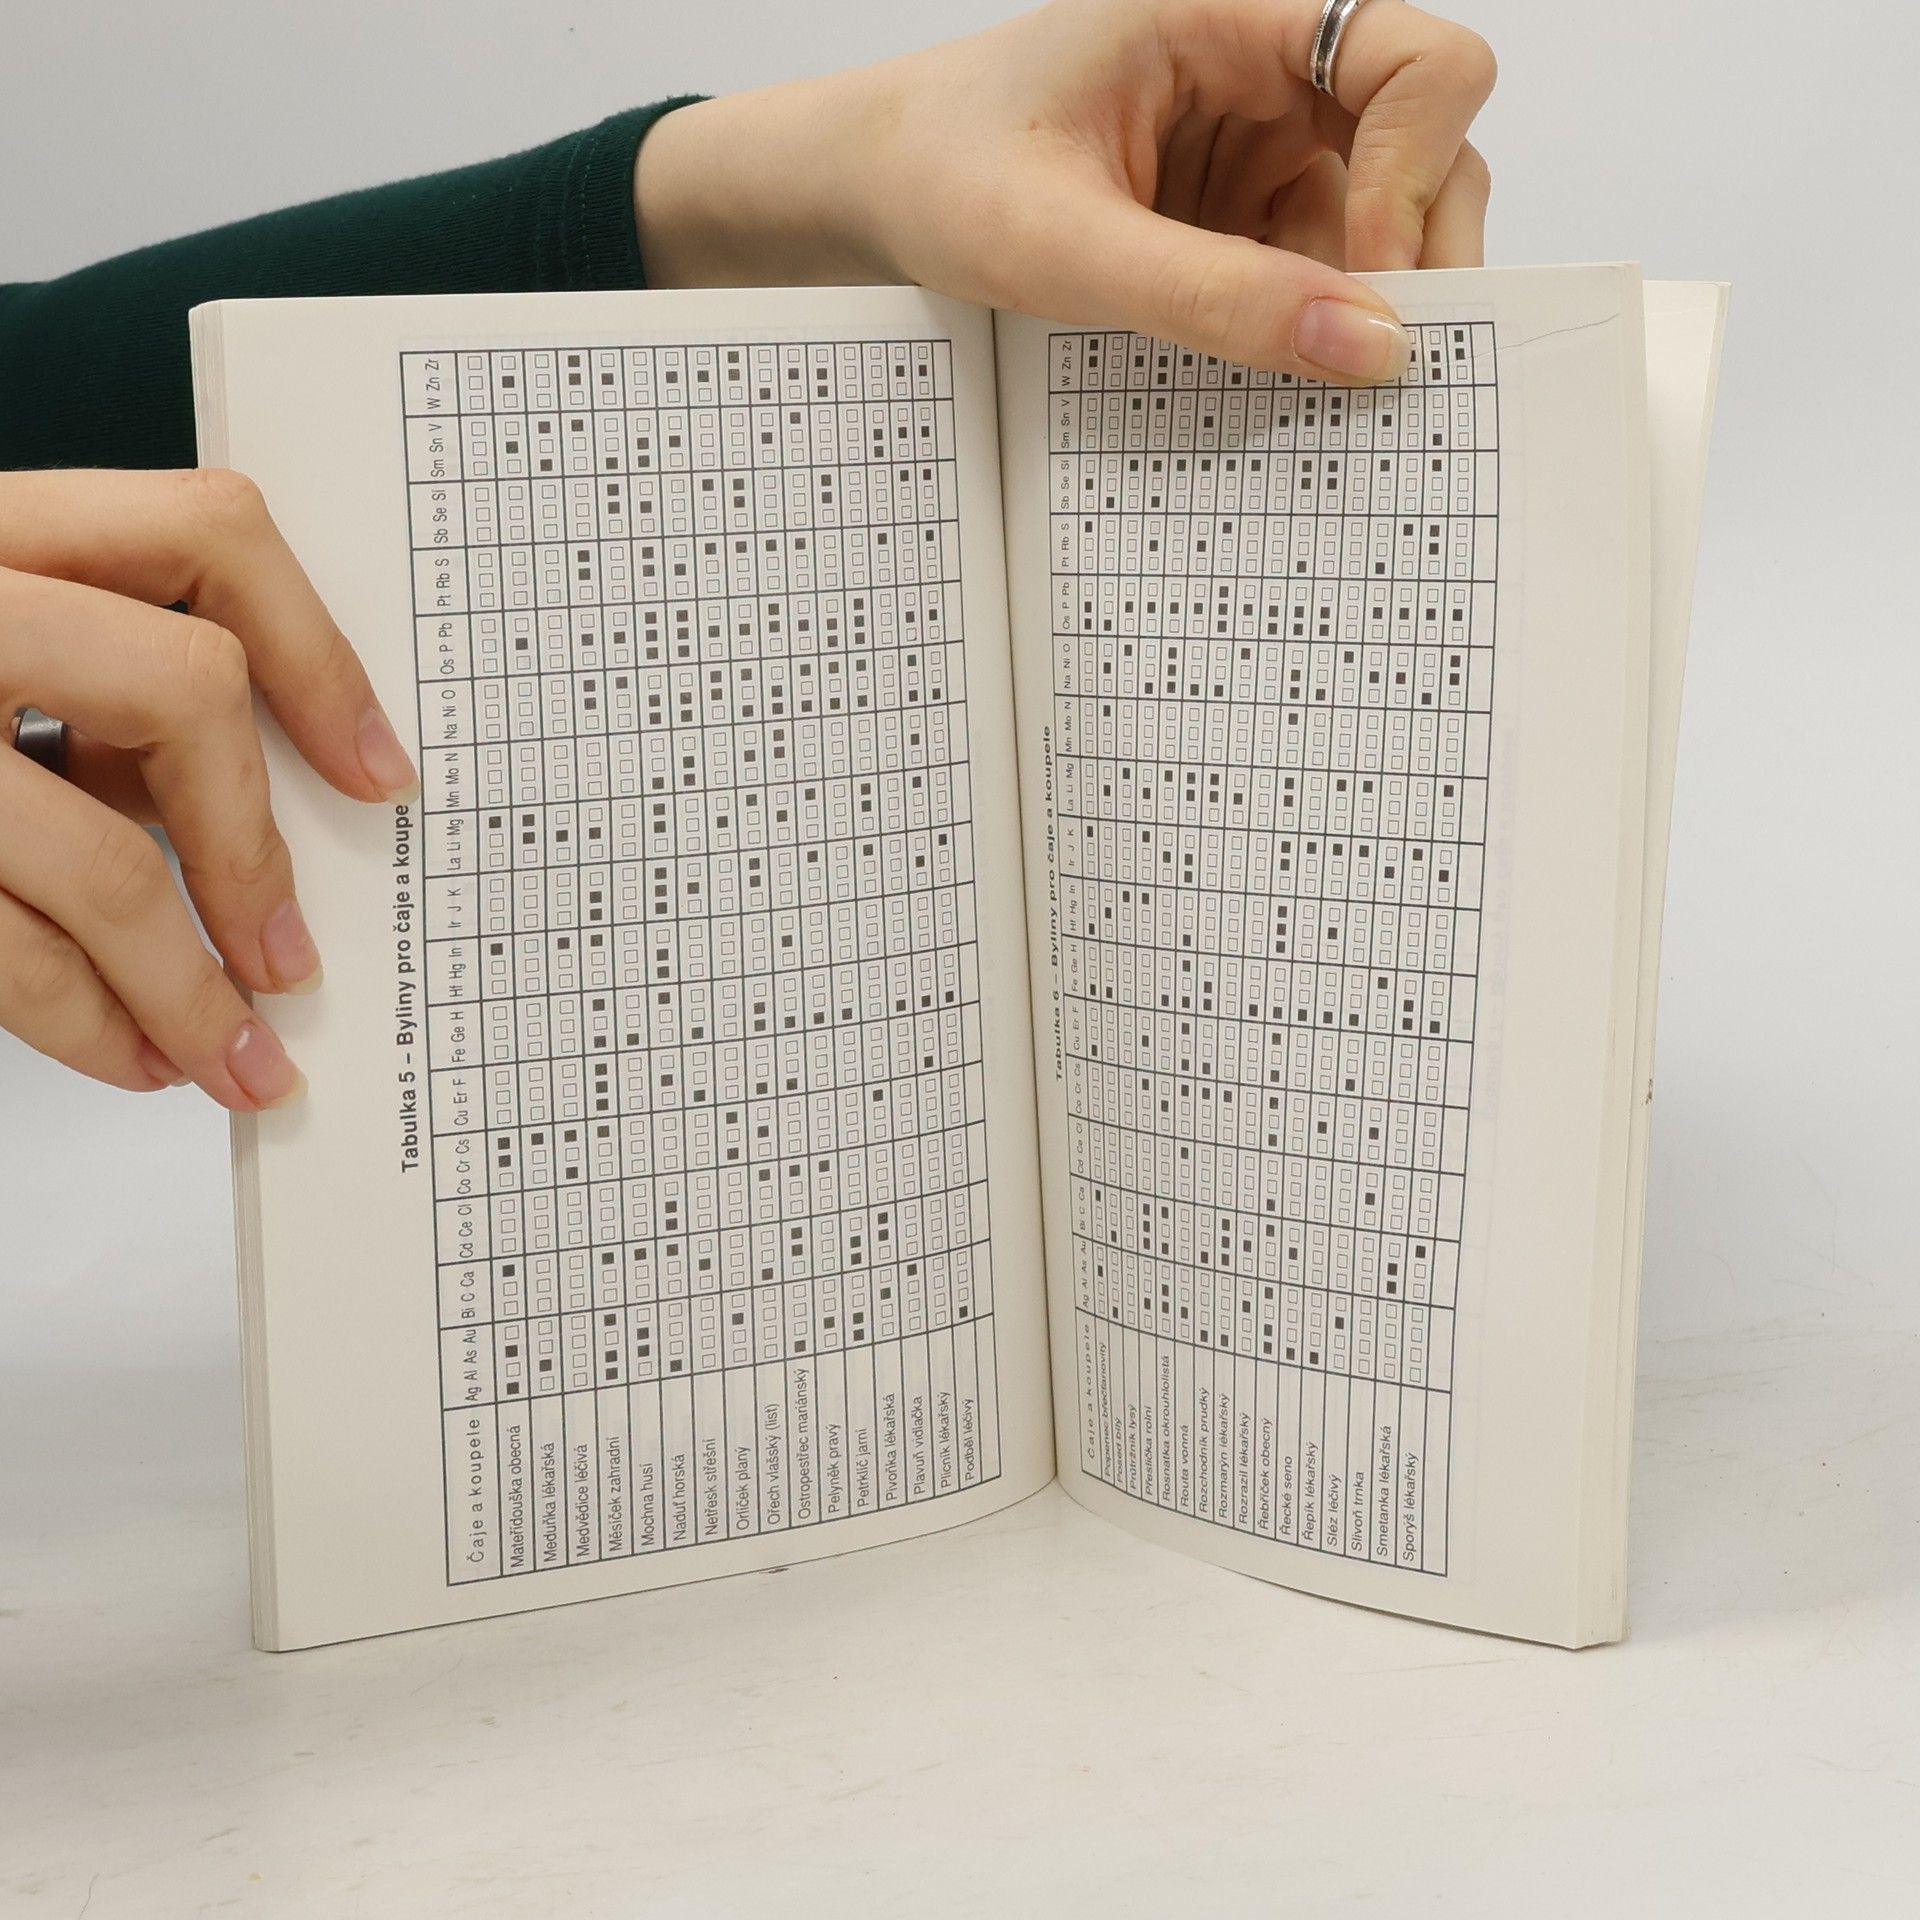 Tabulka 5 – Byliny pro čaje a koupe
Čaje a koupele Ag Al As Au Bi C Ca Cd Ce Cl Co Cr Cs Cu Er F Fe Ge H Hf Hg In Ir J K La Li Mg Mn Mo N Na Ni O Os P Pb Pt Rb S Sb Se Si Sm Sn V W Zn Zr
Mateřídouška obecná
Meduňka lékařská
Medvědice léčivá
Měsíček zahradní
Mochna husí
Naduť horská
Netřesk střešní
Orlíček planý
Ořech vlašský (list)
Ostropestřec mariánský
Pelyněk pravý
Petrklíč jarní
Pivoňka lékařská
Plavuň vidlačka
Plicník lékařský
Podběl léčivý
Tabulka 6 – Byliny pro čaje a koupele
Čaje a koupele Ag Al As Au Bi C Ca Cd Ce Cl Co Cr Cs Cu Er F Fe Ge H Hf Hg In Ir J K La Li Mg Mn Mo N Na Ni O Os P Pb Pt Rb S Sb Se Si Sm Sn V W Zn Zr
Popenec břečťanovitý
Posed bílý
Průtržník lysý
Přeslička rolní
Rosnatka okrouhlolistá
Routa vonná
Rozchodník prudký
Rozmarýn lékařský
Rozrazil lékařský
Řebříček obecný
Řecké seno
Řepík lékařský
Sléz léčivý
Slivoň trnka
Smetanka lékařská
Sporýš lékařský